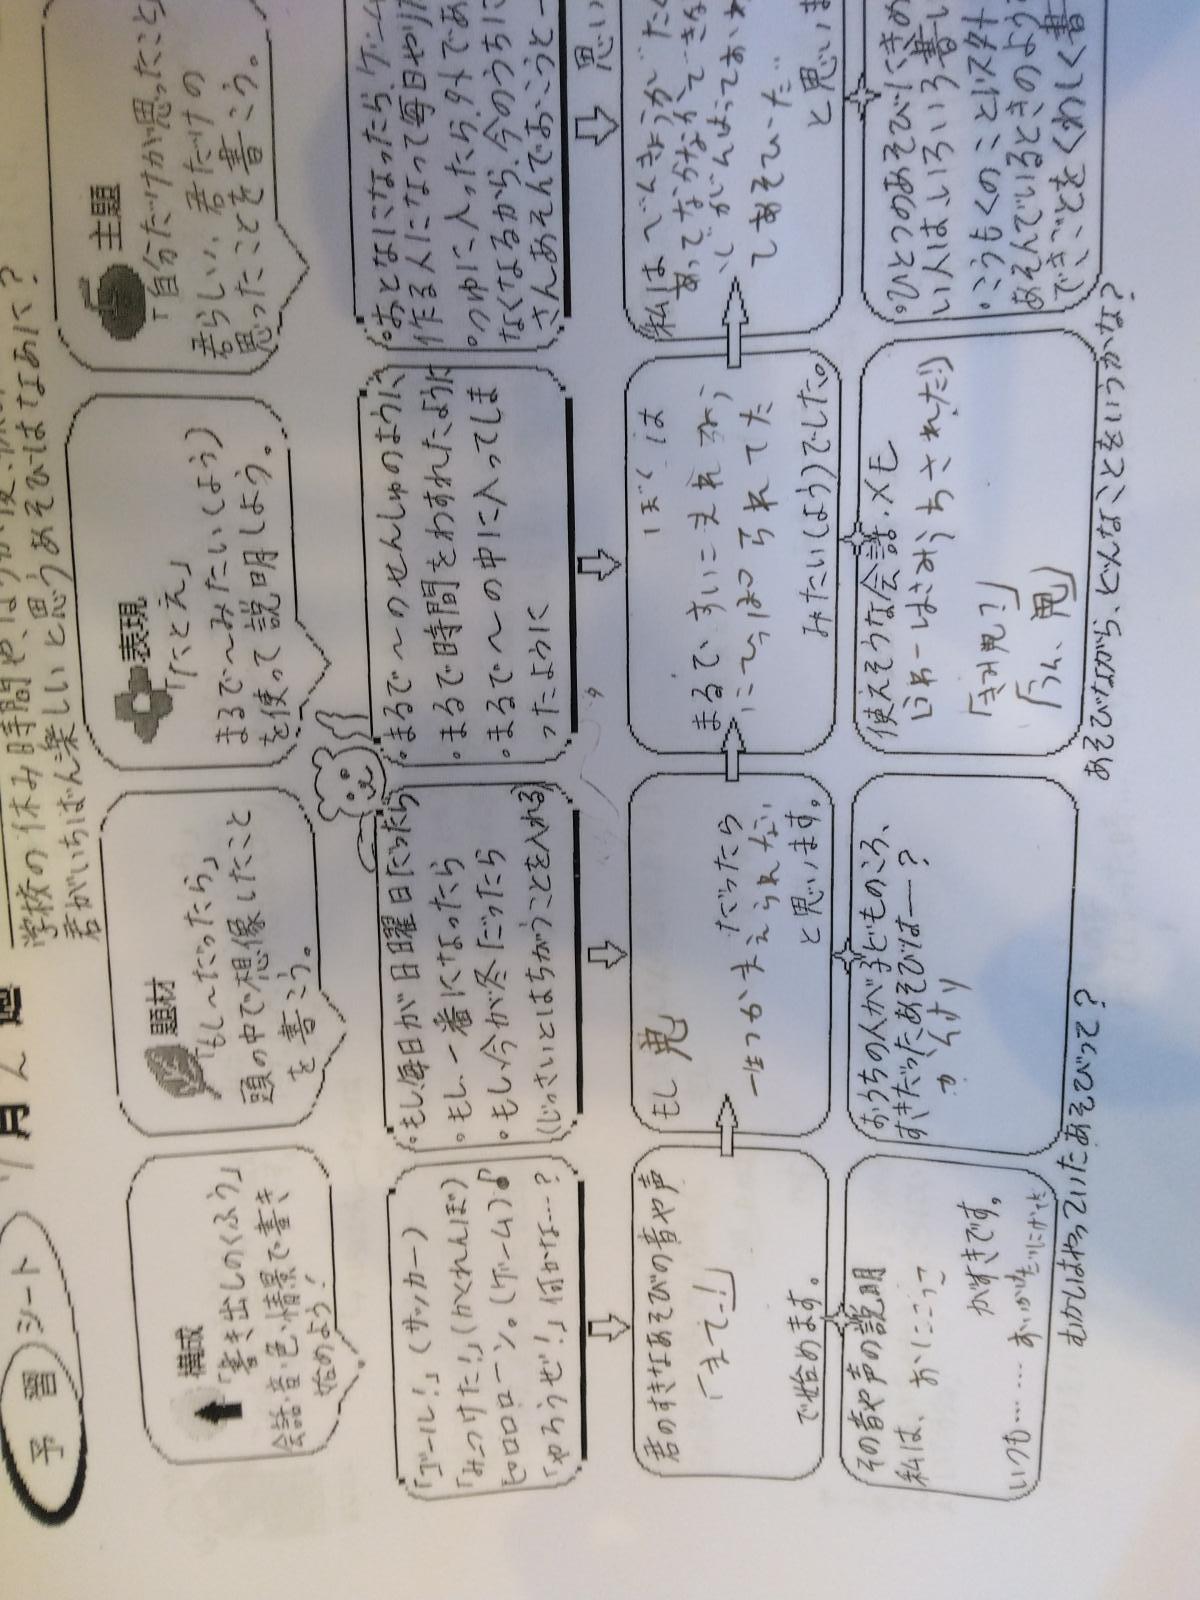 予習シート
学校の休み時間や、ほうか後、
君がいちばん楽しいと思うあそびはなあに？
構成
「書き出しのくふう」
会話・音・色・情景で書き
始めよう！
「ゴール！」（サッカー）
「みつけた！」（かくれんぼ）
ピロロローン。（ゲーム）
「やろうぜ！」何かな…？
君のすきなあそびの音や声
「まてー！」
で始めます。
その音や声の説明
私は、おにごっこ
がすきです。
いつも……
むかしはやっていたあそびって？
題材
「もし～だったら」
頭の中で想像したこと
を書こう。
・もし、毎日が日曜日だったら
・もし、一番になったら
・もし、今が冬だったら
（じっさいとはちがうことを入れる）
もし 鬼
だったら
一生つかまえられない
と思います。
おうちの人が子どものころ、
すきだったあそびは――？
表現
「たとえ」
まるで～みたい（よう）
を使って説明しよう。
・まるで～のせんしゅのように
・まるで時間をわすれたように
・まるで～の中に入ってしま
ったように
ぼくは
まるで、
みたい（よう）でした。
使えそうな会話・メモ
「きみ鬼？」
「うん、鬼」
あそびながら、どんなことをいうかな？
主題
「自分だけが思ったこと
君らしい、君だけの
思ったことを書こう。
・おとなになったら、ゲーム
作る人になって毎日やりた
・つゆに入ったら、外であ
なくなるから、今のうちに
さんあそんでおこうと
思い
私は
てあそていた
と思いま
・ひとつのあそびにきめ
い人はいろいろ書い
・こうもくのことにスタ
あそんでいるときのよう
できごとをくわしく書